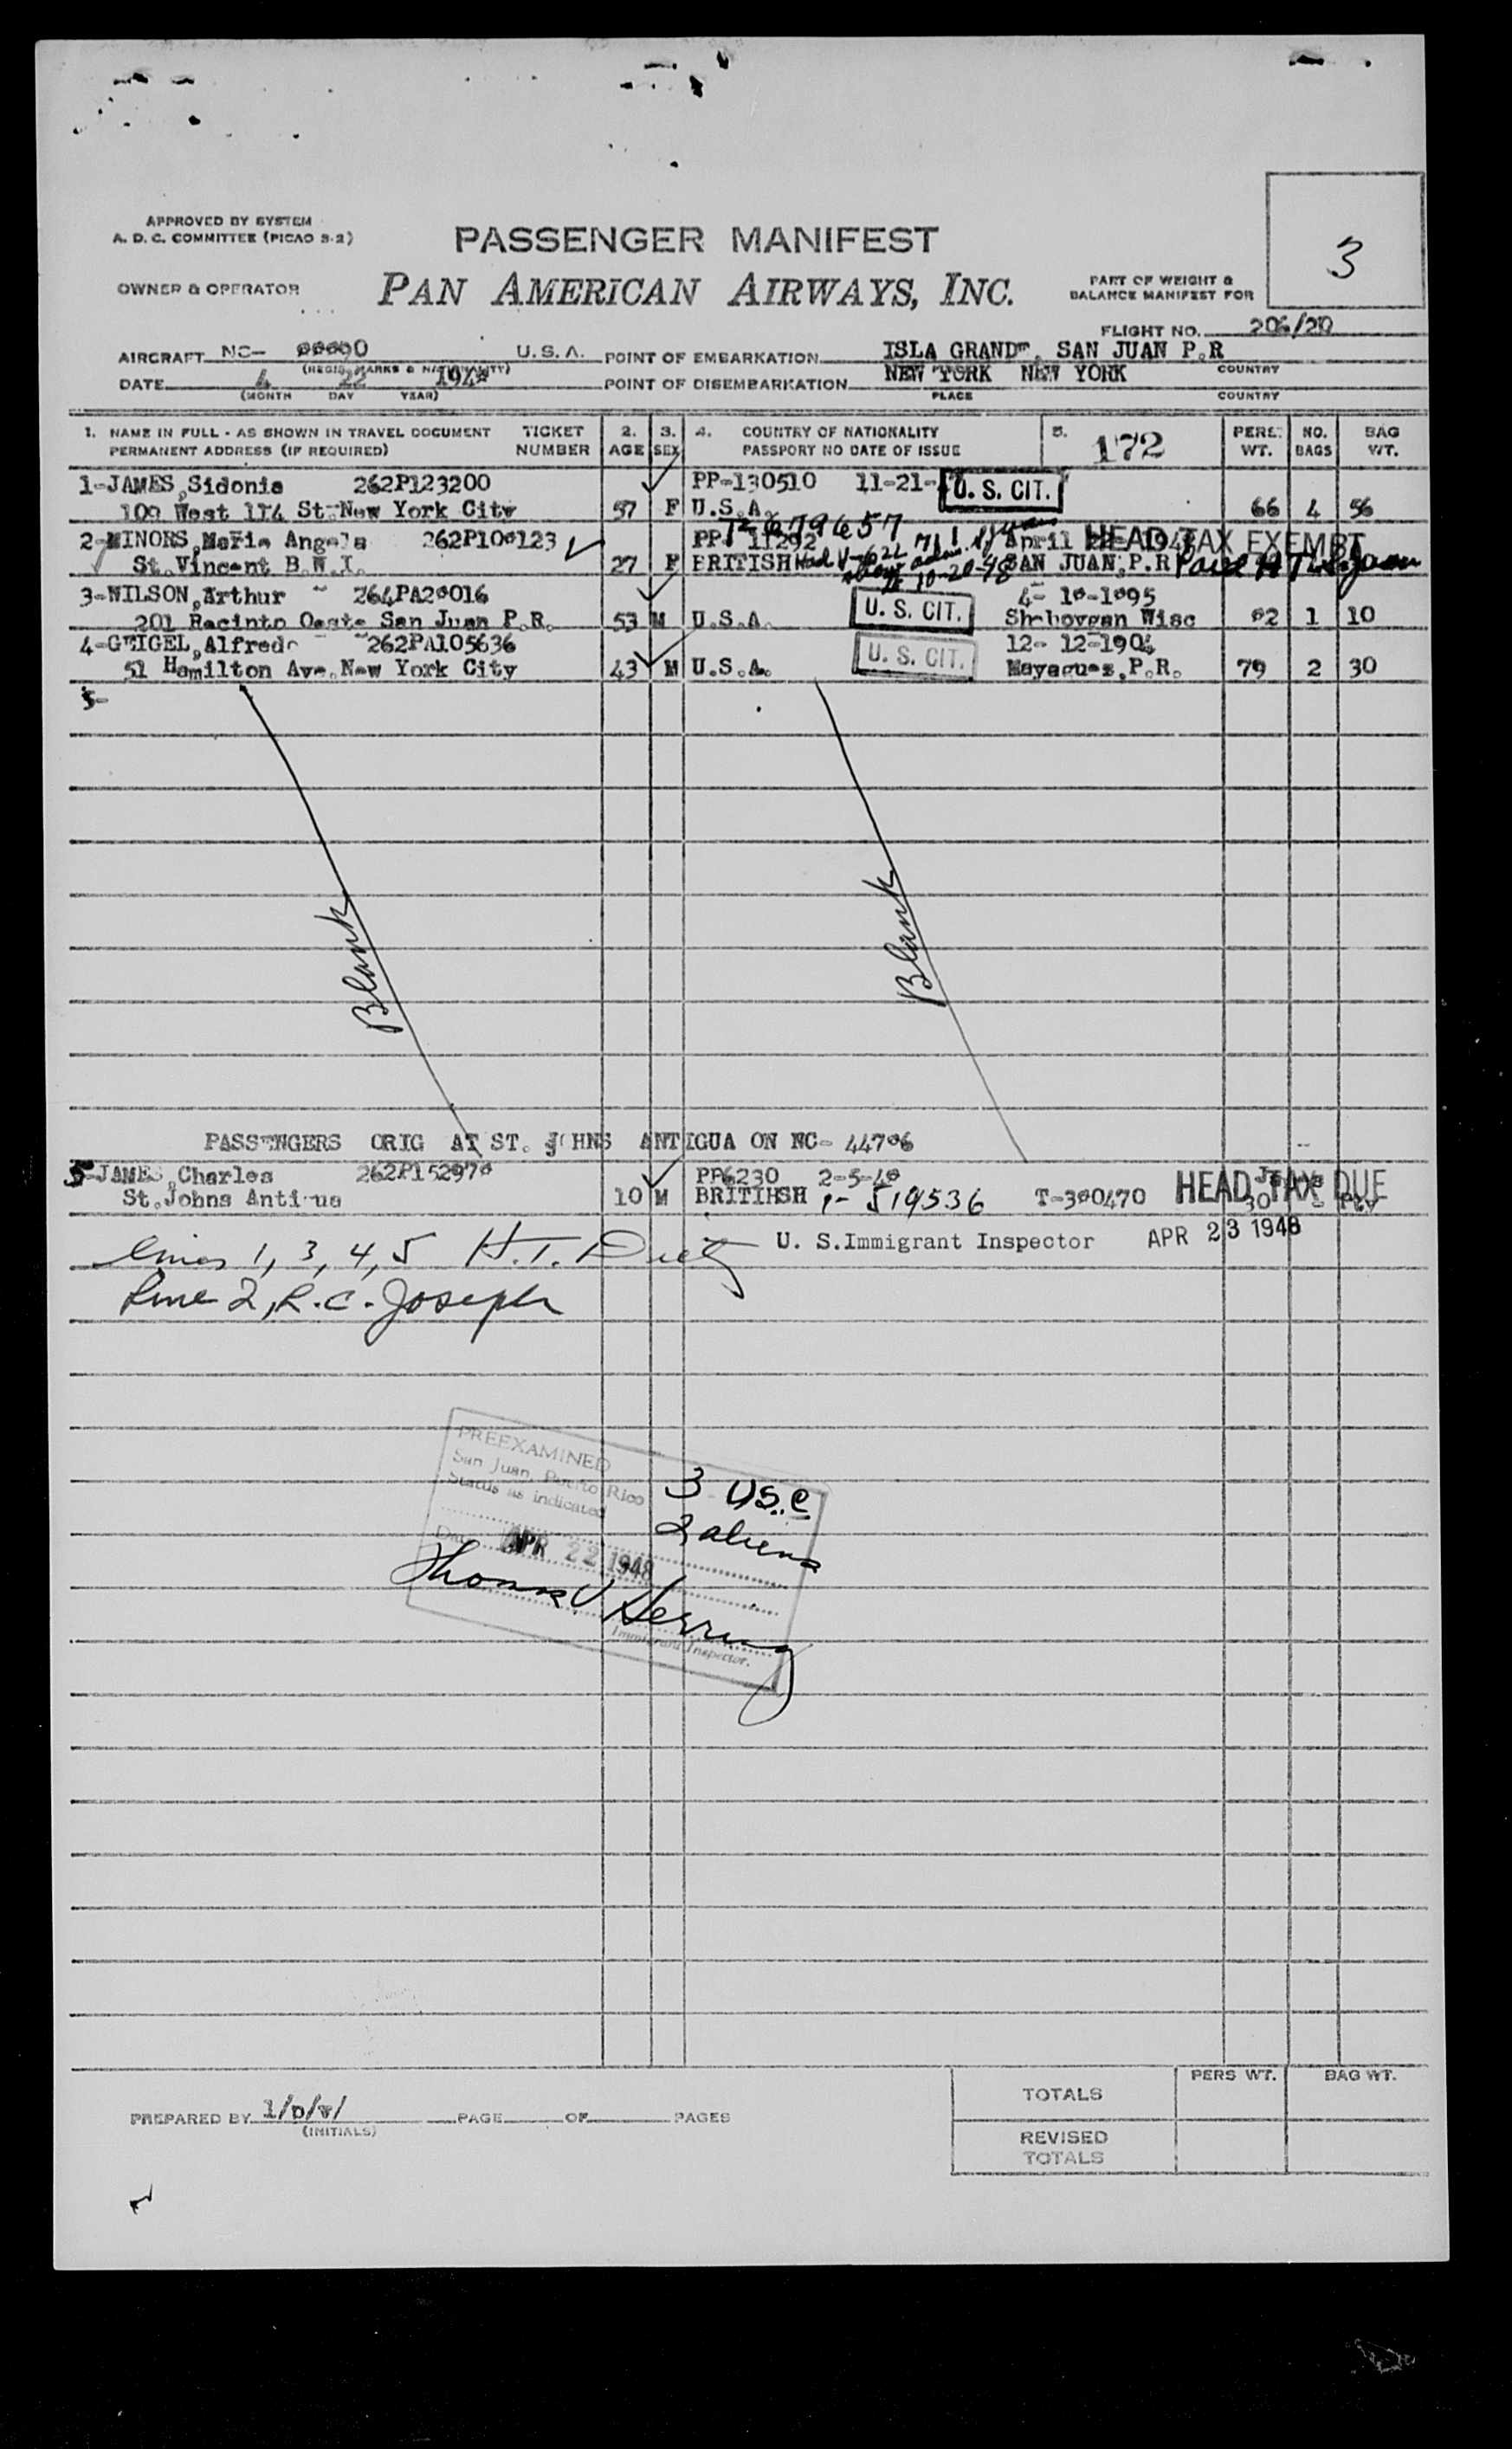 APPROVED BY SYSTEM
A. D. C. COMMITTEE (PICAO S-2)
3
PASSENGER MANIFEST
OWNER & OPERATOR
PAN AMERICAN AIRWAYS, INC.
PART OF WEIGHT &
BALANCE MANIFEST FOR
FLIGHT NO. 206/20
AIRCRAFT NC- U.S.A. POINT OF EMBARKATION ISLA GRANDE, SAN JUAN P.R
(REGIS. MARKS & NATIONALITY) COUNTRY
DATE 4 22 194 POINT OF DISEMBARKATION NEW YORK NEW YORK
(MONTH DAY YEAR) PLACE COUNTRY
1. NAME IN FULL - AS SHOWN IN TRAVEL DOCUMENT TICKET 2. 3. 4. COUNTRY OF NATIONALITY 5. 172 PERS. NO. BAG
PERMANENT ADDRESS (IF REQUIRED) NUMBER AGE SEX PASSPORT NO DATE OF ISSUE WT. BAGS WT.
1-JAMES,Sidonia 262P123200 PP-130510 11-21- U. S. CIT.
109 West 114 St New York City 57 F U.S.A. 66 4 56
T-6779657
2-MINORS,Maria Angela 262P100123 PP- 11292 April HEAD TAX EXEMPT
St.Vincent B.W.I. 27 F BRITISH 10-20-48 SAN JUAN,P.R Paid HT
3-WILSON,Arthur 264PA20016 U. S. CIT. 4- 10-1895
201 Racinto Oeste San Juan P.R. 53 M U.S.A. Sheboygan Wisc 82 1 10
4-GEIGEL,Alfredo 262PA105636 U. S. CIT. 12- 12-1904
51 Hamilton Ave.New York City 43 M U.S.A. Mayaguez,P.R. 79 2 30
5-
Blank Blank
PASSENGERS ORIG AT ST. JOHNS ANTIGUA ON NC- 44706
5-JAMES,Charles 262P152978 PP6230 2-5-48 HEAD TAX DUE
St.Johns Antigua 10 M BRITIHSH 1-519536 T-300470
Lines 1, 3, 4, 5 H.T. U. S.Immigrant Inspector APR 23 1948
Line 2, R.C. Joseph
PREEXAMINED
San Juan, Puerto Rico
Status as indicated
3 USC
2 aliens
Date APR 22 1948
Thomas V Herring
Immigrant Inspector.
PERS WT. BAG WT.
TOTALS
PREPARED BY PAGE OF PAGES
(INITIALS)
REVISED
TOTALS